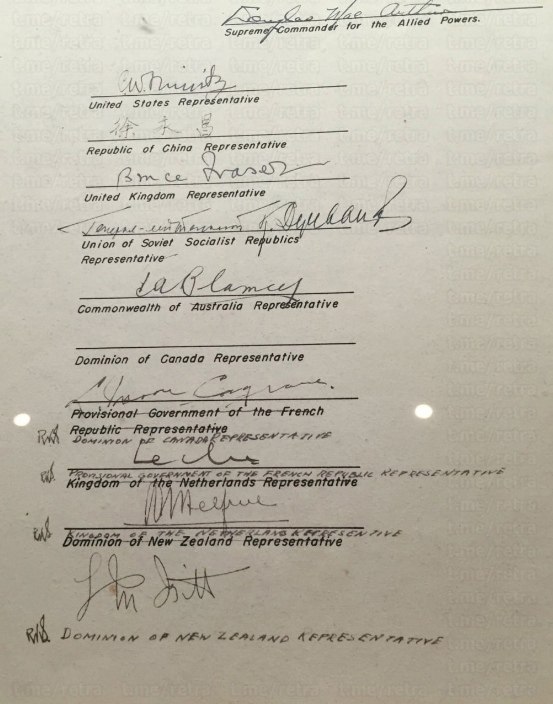 Douglas MacArthur
Supreme Commander for the Allied Powers.
C.W. Nimitz
United States Representative
徐永昌
Republic of China Representative
Bruce Fraser
United Kingdom Representative
Union of Soviet Socialist Republics
Representative
T.A. Blamey
Commonwealth of Australia Representative
Dominion of Canada Representative
L. Moore Cosgrave.
Provisional Government of the French
Republic Representative
DOMINION OF CANADA REPRESENTATIVE
Leclerc
PROVISIONAL GOVERNMENT OF THE FRENCH REPUBLIC REPRESENTATIVE
Kingdom of the Netherlands Representative
Helfrich
KINGDOM OF THE NETHERLAND REPRESENTIVE
Dominion of New Zealand Representative
L M Isitt
DOMINION OF NEW ZEALAND REPRESENTATIVE
t.me/retra